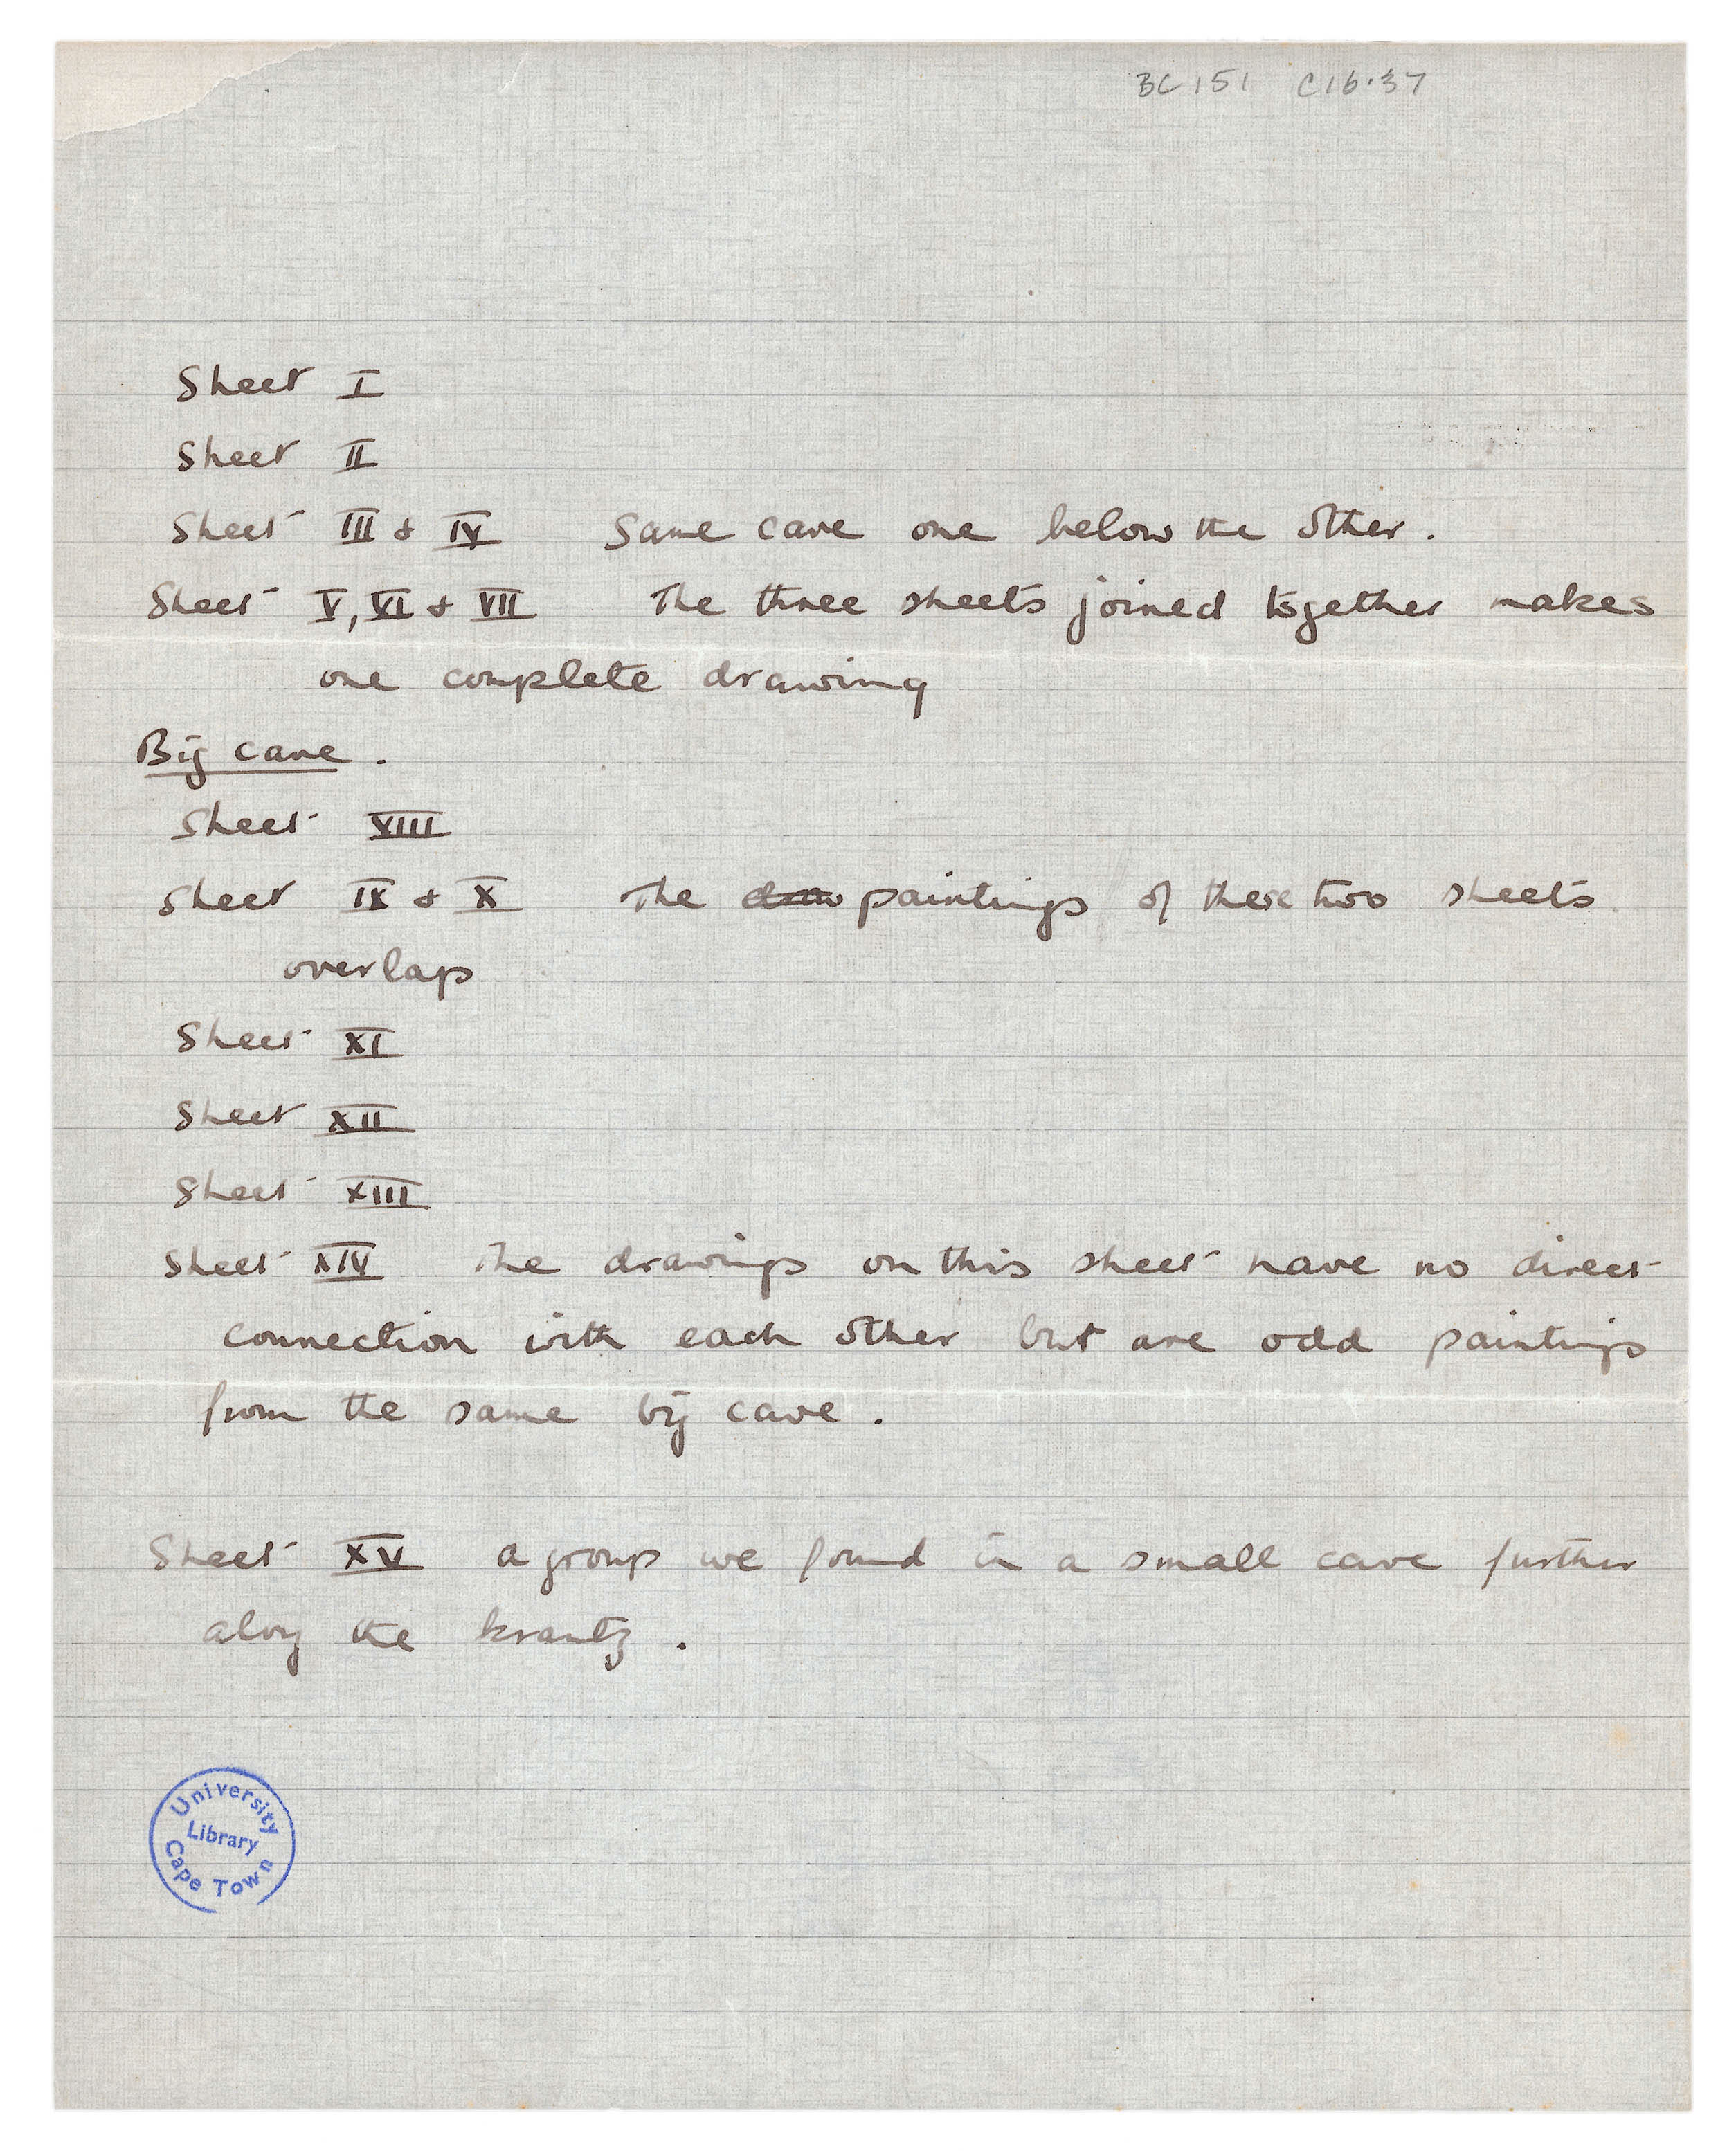 BC 151 C16.37
Sheet I
Sheet II
Sheet III & IV Same cave one below the other.
Sheet V, VI & VII The three sheets joined together makes
one complete drawing
Big cave.
Sheet VIII
Sheet IX & X The paintings of these two sheets
overlap
Sheet XI
Sheet XII
Sheet XIII
Sheet XIV The drawings on this sheet have no direct
connection with each other but are odd paintings
from the same big cave.
Sheet XV a group we found in a small cave further
along the krantz.
University
Library
Cape Town